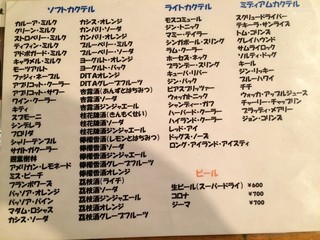 ソフトカクテル
カルーア・ミルク
グリーン・ミルク
ストロベリー・ミルク
ティフィン・ミルク
アドボガード・ミルク
キャラメル・ミルク
モーツアルト
ファジィ・ネーブル
アプリコット・クーラー
アプリコット・サワー
ワイン・クーラー
キティ
スプモーニ
シンデレラ
フロリダ
シャリーテンプル
サラトガクーラー
照葉樹林
アメリカン・レモネード
ミス・ピーチ
フランボワーズ
パッソア・オレンジ
パッソア・パイン
マダム・ロシャス
カシス・ソーダ
カシス・オレンジ
カンパリ・ソーダ
カンパリ・オレンジ
ブルーベリー・ミルク
ブルーベリー・ソーダ
ヨーグルト・オレンジ
ヨーグルト・パック
DITAオレンジ
DITAグレープフルーツ
杏露酒(あんずとはちみつ)
杏露酒ソーダ
杏露酒ジンジャエール
桂花陳酒(きんもくせい)
桂花陳酒ソーダ
桂花陳酒ジンジャエール
檸檬香酒(レモンとはちみつ)
檸檬香酒ソーダ
檸檬香酒ジンジャエール
檸檬香酒オレンジ
茘枝酒(ライチ)
茘枝酒ソーダ
茘枝酒オレンジ
茘枝酒ジンジャエール
茘枝酒グレープフルーツ
ライトカクテル
モスコミュール
ジン・トニック
マミー・テイラー
シンガポール・スリング
ラム・クーラー
ホーセス・ネック
ブランデー・スリング
キューバ・リバー
ジン・バック
ピアスプリッツァー
ウォッカ・トニック
シャンティー・ガフ
ハーバード・クーラー
ハイランド・クーラー
レッド・アイ
ドッグス・ノーズ
ロング・アイランド・アイスティ
ビール
生ビール(スーパードライ) ¥600
コロナ ¥700
ジーマ ¥700
ミディアムカクテル
スクリュードライバー
テキーラ・サンライズ
トム・コリンズ
グレイハウンド
サムライロック
ソルティ・ドッグ
キール
ジン・リッキー
ブルー・ハワイ
チチ
ウォッカ・アップルジュース
チャーリー・チャップリン
ブラッディ・メアリー
ジョン・コリンズ